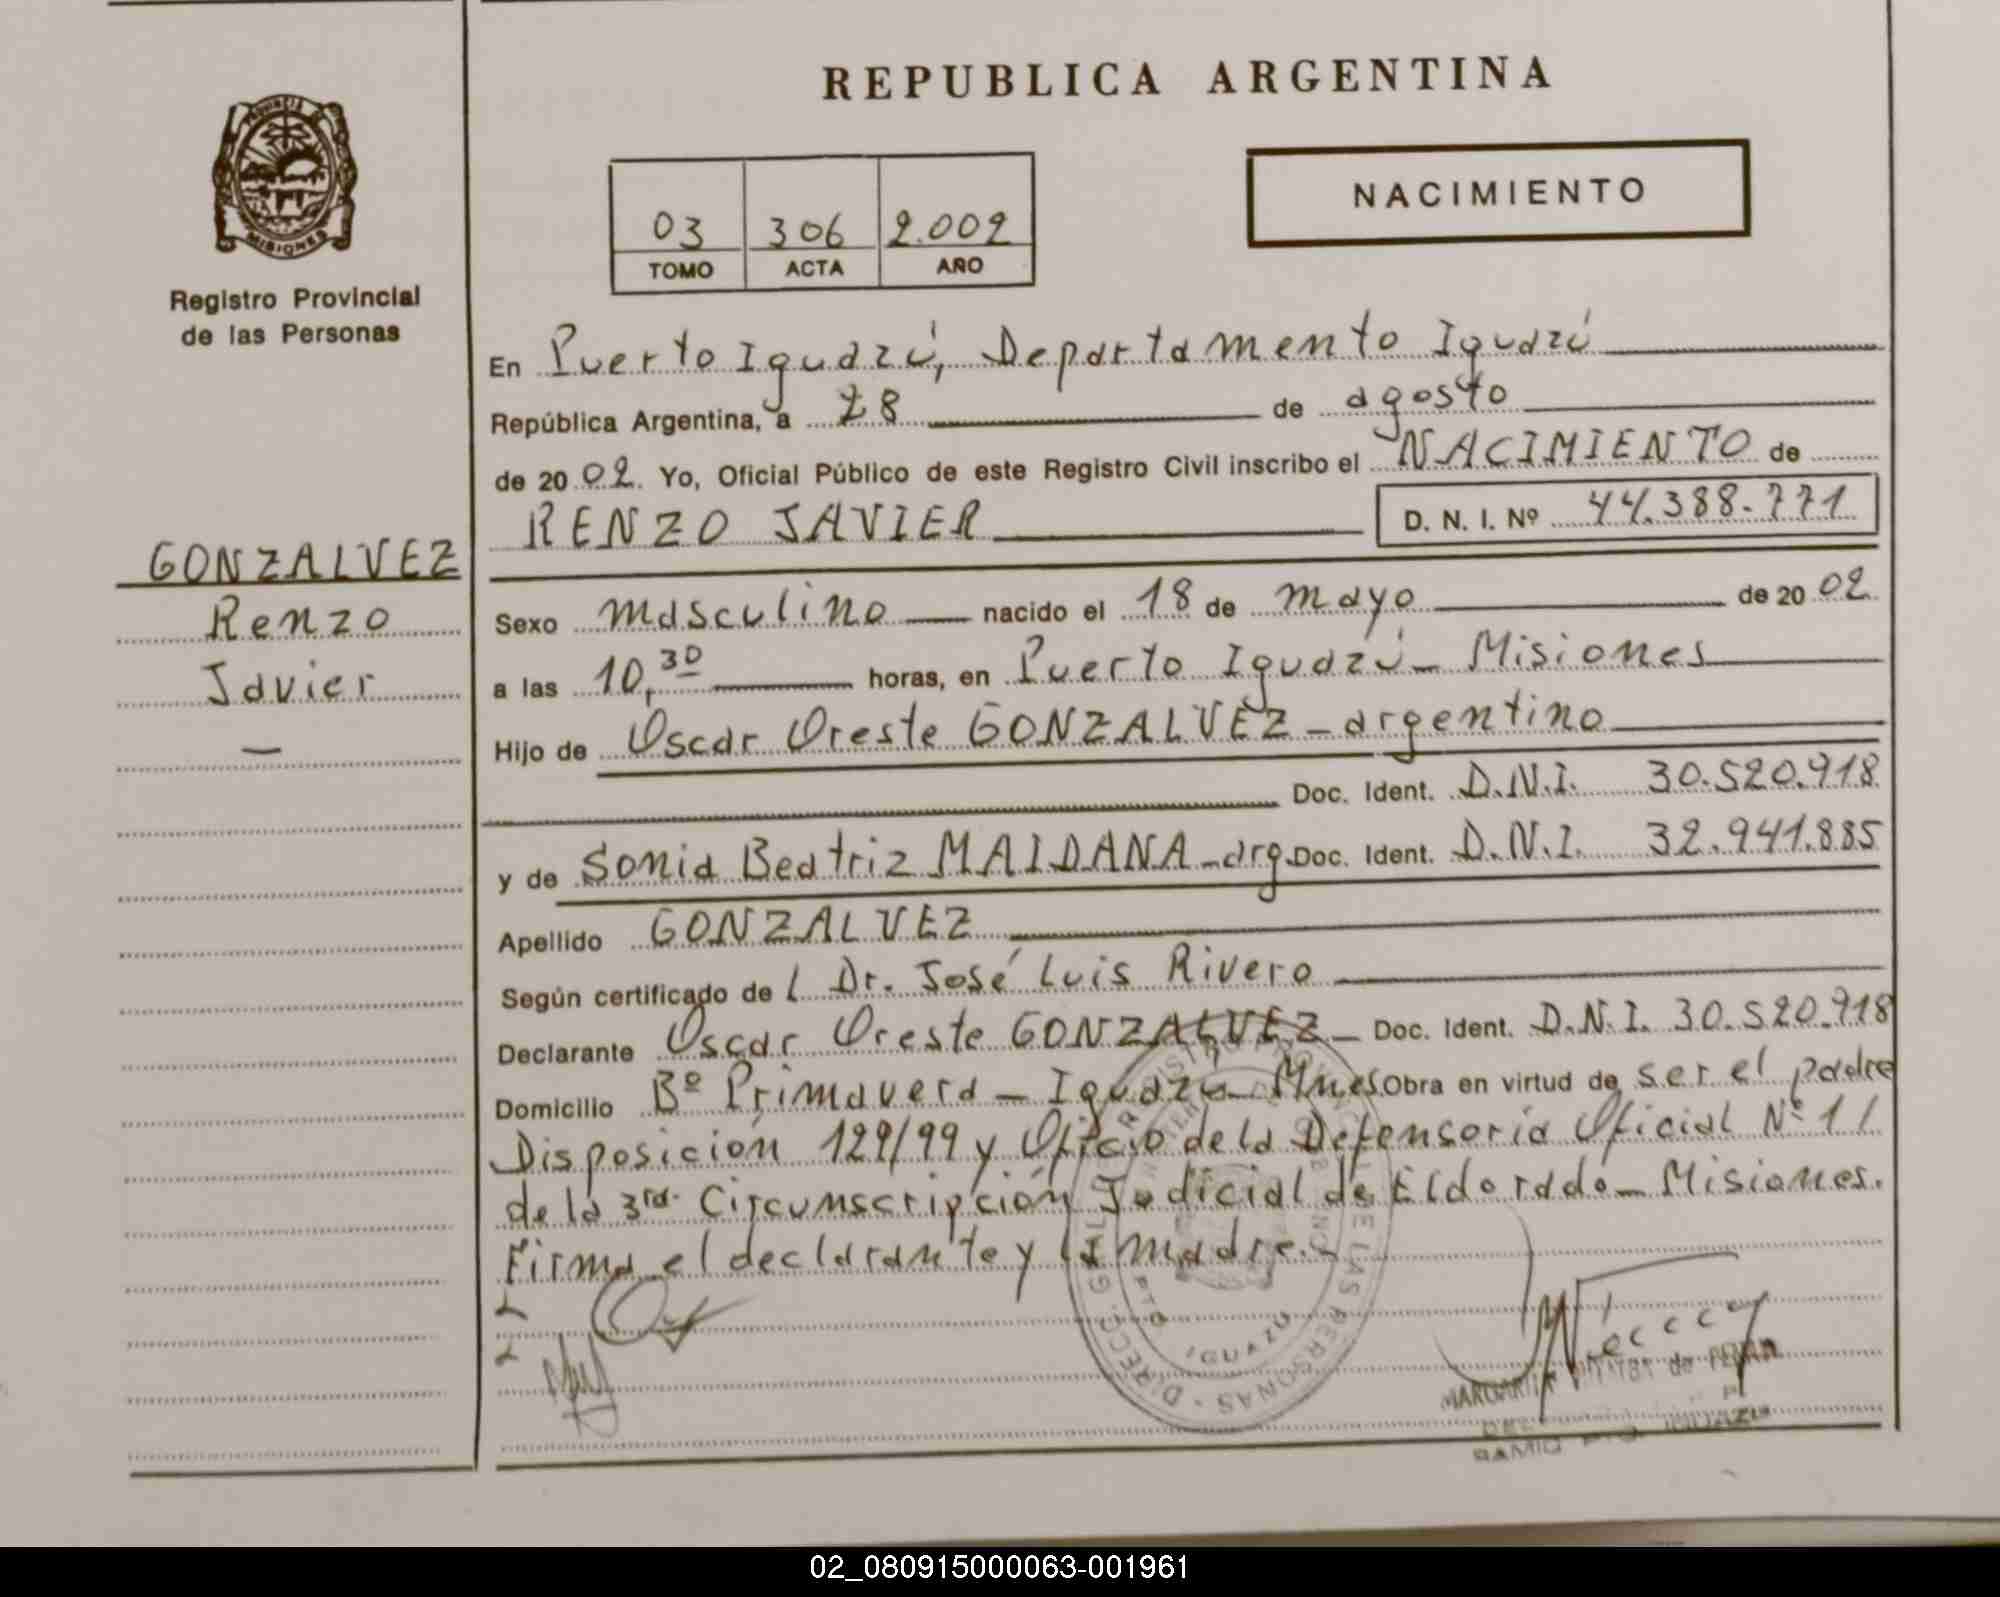 REPUBLICA ARGENTINA
PROVINCIA
MISIONES
Registro Provincial
de las Personas
NACIMIENTO
03 306 2.002
TOMO ACTA AÑO
En Puerto Iguazú, Departamento Iguazú
República Argentina, a 28 de agosto
de 2002 Yo, Oficial Público de este Registro Civil inscribo el NACIMIENTO de
RENZO JAVIER D. N. I. Nº 44.388.771
GONZALVEZ
Renzo
Javier
Sexo masculino nacido el 18 de mayo de 2002
a las 10,30 horas, en Puerto Iguazú - Misiones
Hijo de Oscar Oreste GONZALVEZ - argentino
Doc. Ident. D.N.I. 30.520.918
y de Sonia Beatriz MAIDANA - arg. Doc. Ident. D.N.I. 32.941.885
Apellido GONZALVEZ
Según certificado de l Dr. José Luis Rivero
Declarante Oscar Oreste GONZALVEZ - Doc. Ident. D.N.I. 30.520.918
Domicilio Bº Primavera - Iguazú - Mnes Obra en virtud de ser el padre
Disposición 129/99 y Oficio de la Defensoría Oficial Nº 1 /
de la 3ra. Circunscripción Judicial de Eldorado - Misiones.
Firma el declarante y la madre.-
DIRECC. GRAL. REGISTRO PROVINCIAL DE LAS PERSONAS
PTO IGUAZU
MARGARITA de
IGUAZU
02_080915000063-001961